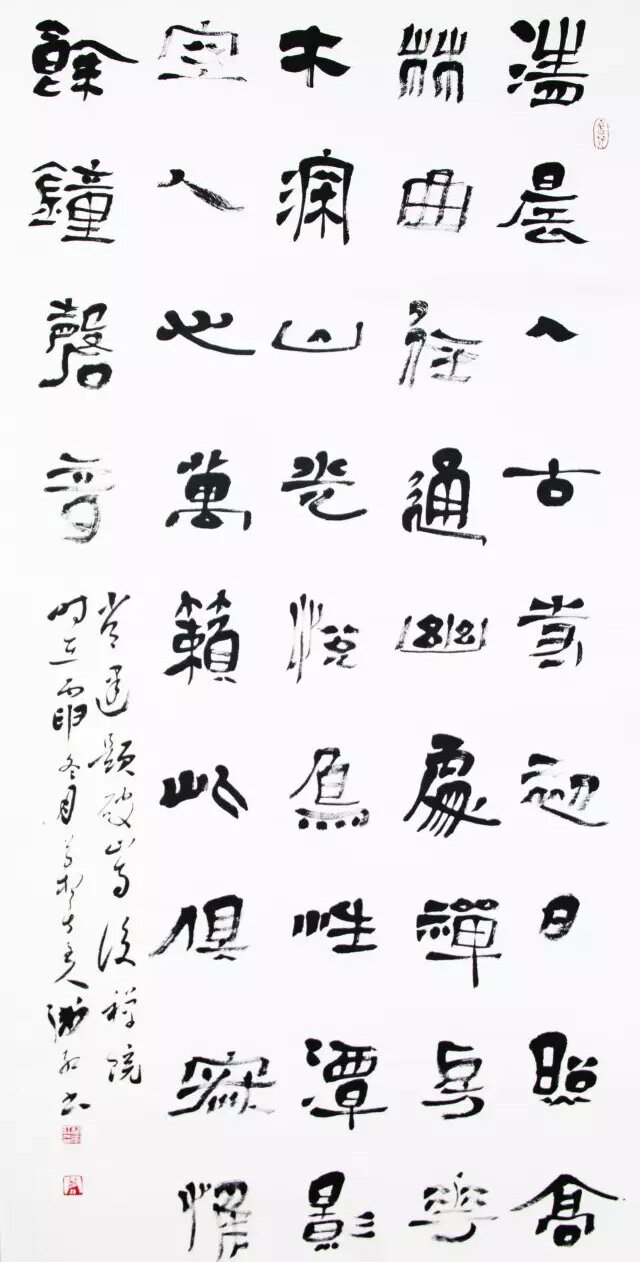 清晨入古寺初日照高
林曲徑通幽處禪房花
木深山光悦鳥性潭影
空人心萬籟此俱寂惟
餘鐘磬音
常建題破山寺後禪院
时在丙申冬月 书